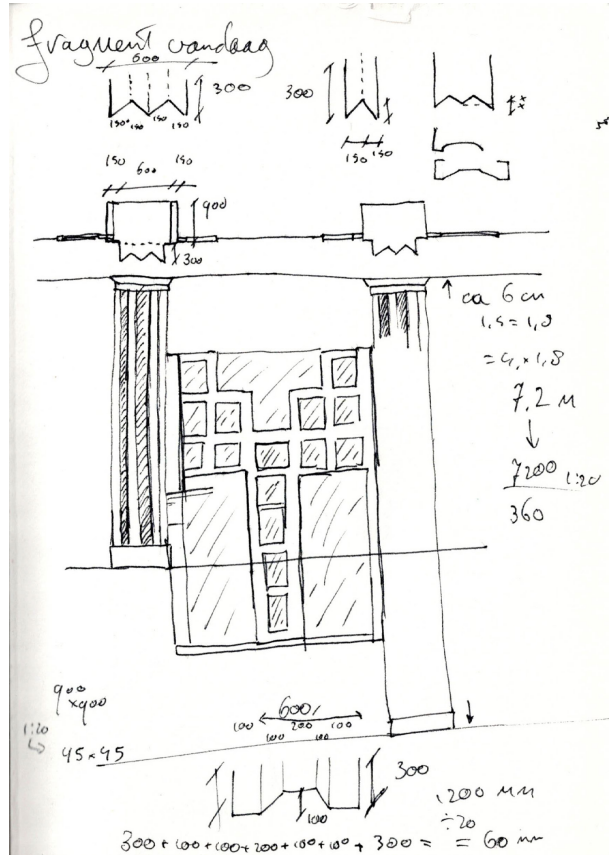 fragment vandaag
600
300
150 150 150 150
300
150 150
x
x
150 600 150
900
300
ca 6 cm
1,5 = 1,8
= 4, × 1,8
7,2 M
7200 1:20
360
900
×900
1:20
45×45
600
100 200 100
100 100
300
100
1200 MM
÷20
300 + 100 + 100 + 200 + 100 + 100 + 300 = = 60 mm